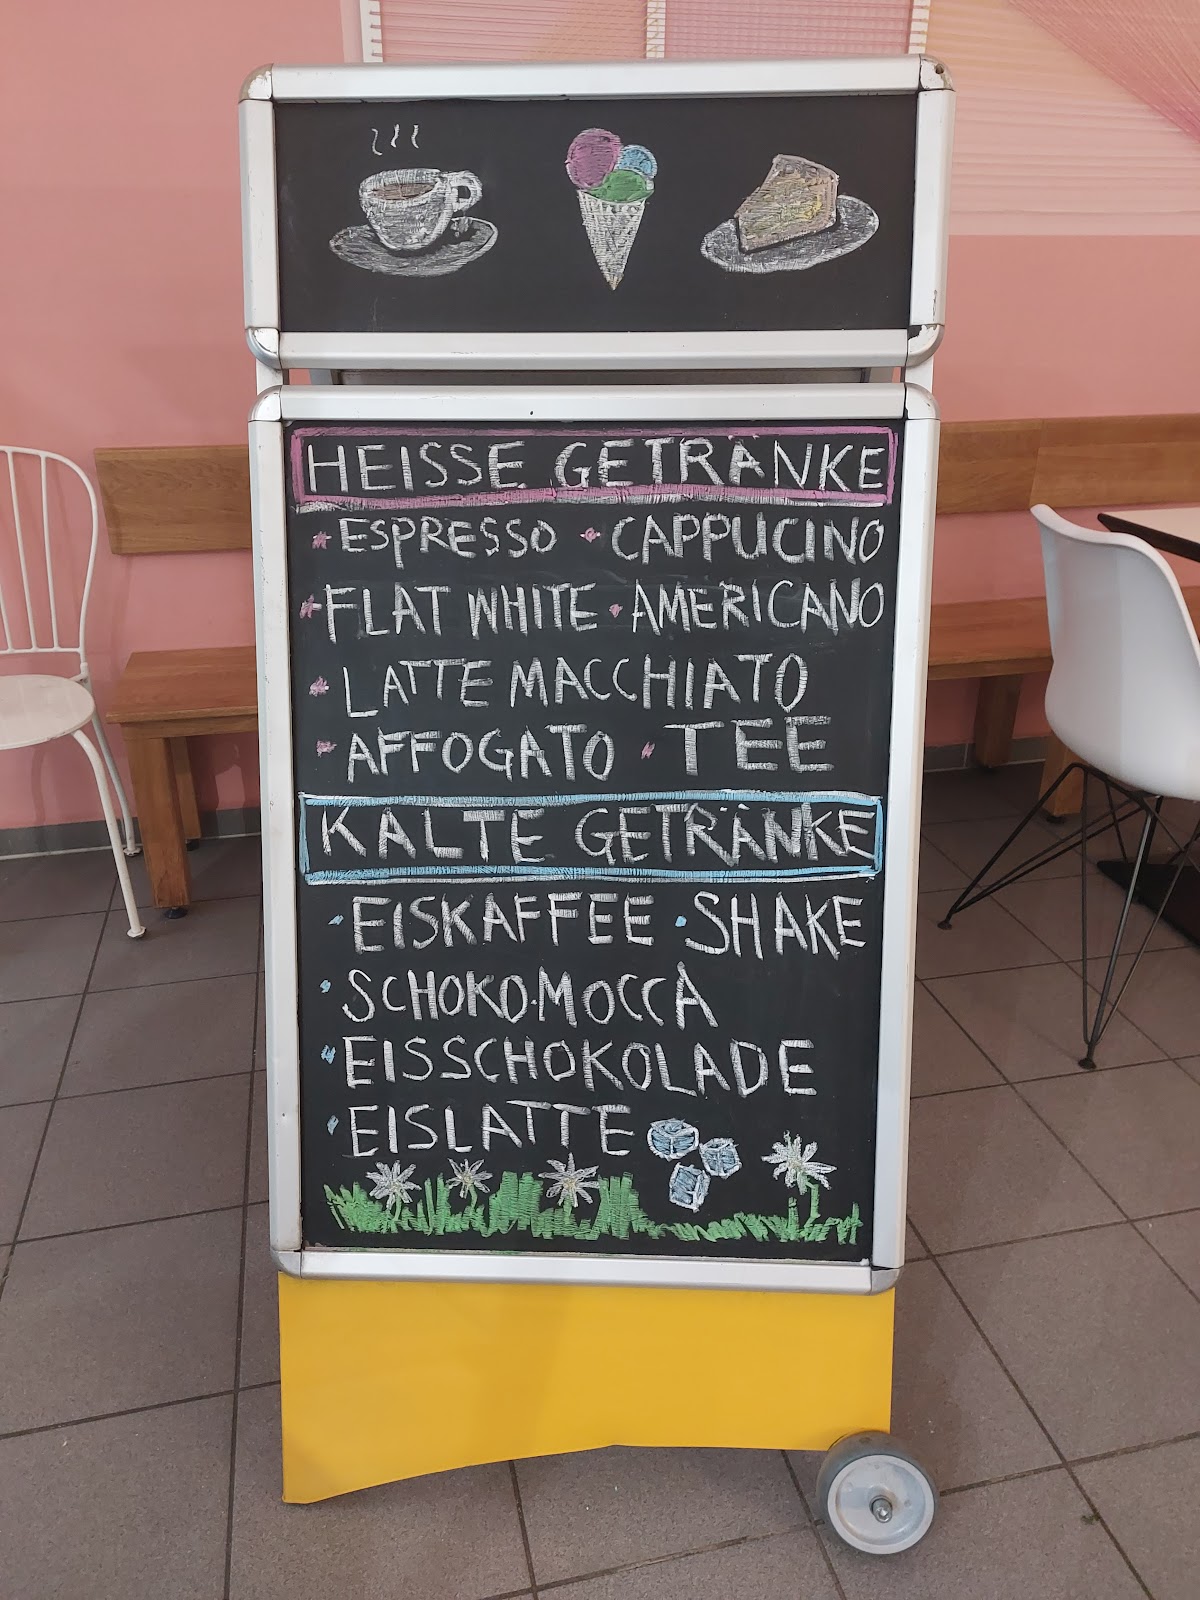 HEISSE GETRÄNKE
* ESPRESSO * CAPPUCINO
* FLAT WHITE * AMERICANO
* LATTE MACCHIATO
* AFFOGATO * TEE
KALTE GETRÄNKE
· EISKAFFEE · SHAKE
· SCHOKO-MOCCA
· EISSCHOKOLADE
· EISLATTE